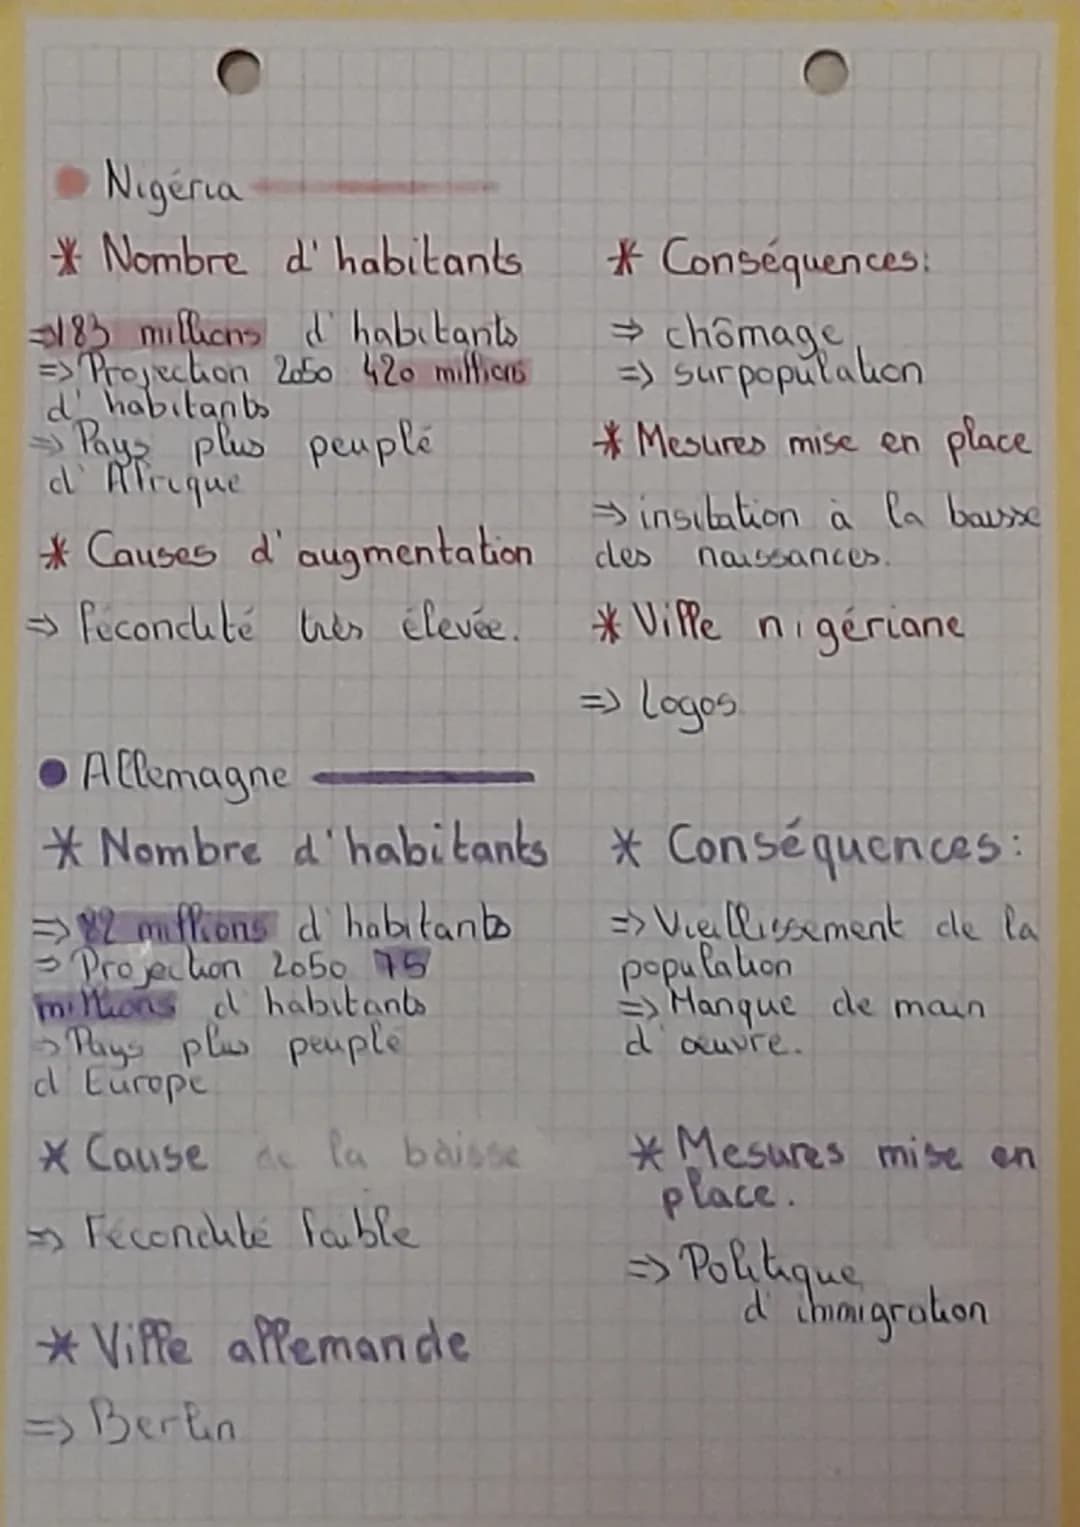 Nigéria
* Nombre d'habitants
=>183 millions d'habitants
=> Projection 2050 420 millions
d'habitants
=> Pays plus peuplé
d'Afrique
* Causes d'augmentation
=> fécondité très élevée.
* Conséquences:
=> chômage
=> surpopulation
* Mesures mise en place
=> insitation à la baisse
des naissances.
* Ville nigériane
=> Logos
Allemagne
* Nombre d'habitants
=> 82 millions d'habitants
=> Projection 2050 75
millions d'habitants
=> Pays plus peuplé
d'Europe
* Cause de la baisse
=> Fécondité faible
* Ville allemande
=> Berlin
* Conséquences:
=> Vieillissement de la
population
=> Manque de main
d'œuvre.
* Mesures mise en
place.
=> Politique
d'immigration